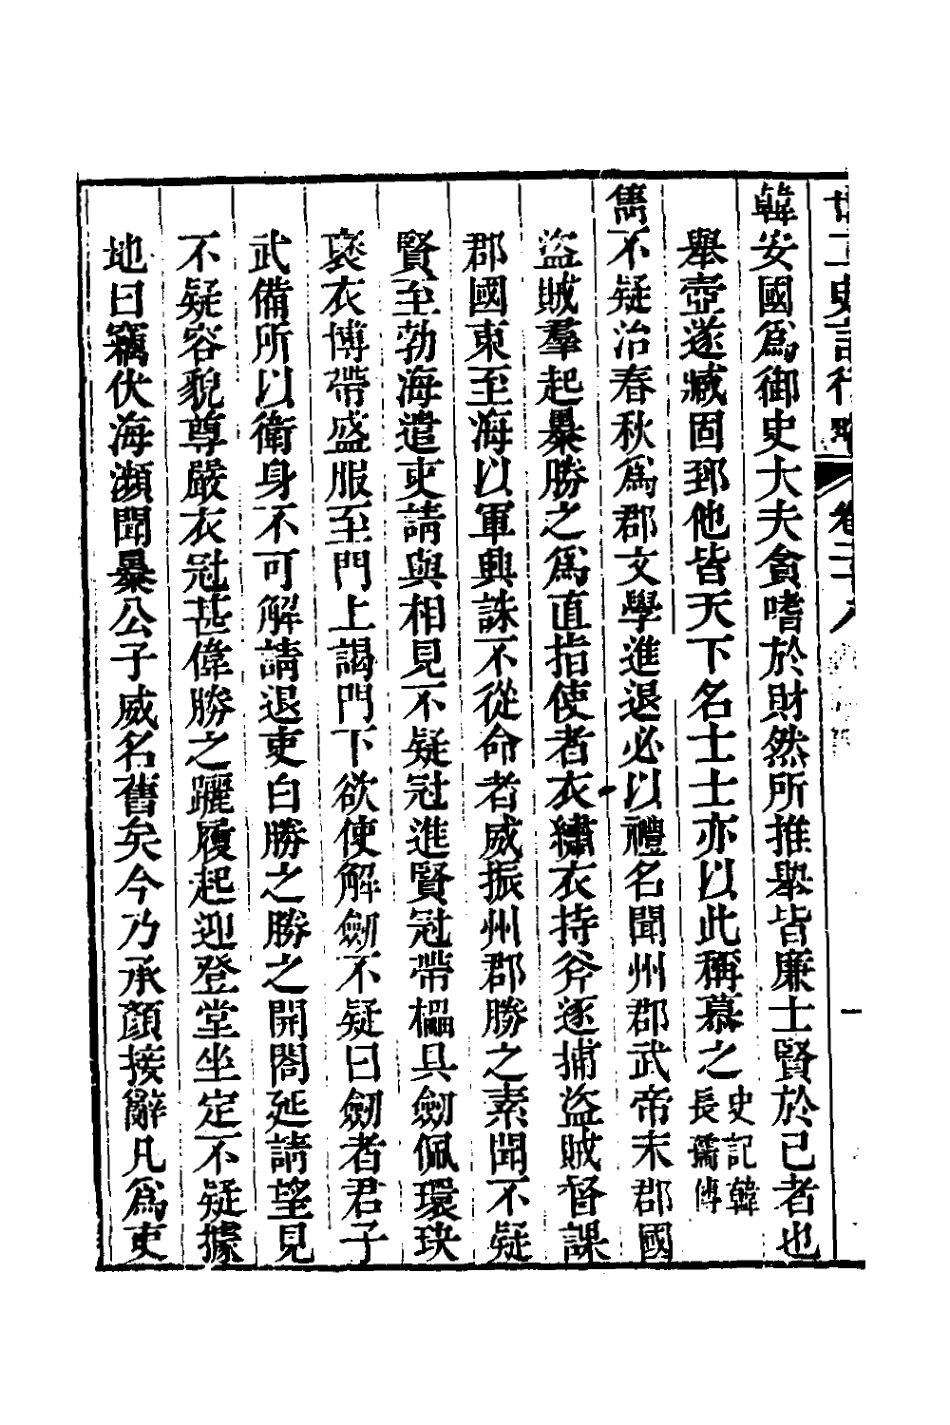 韓安國爲御史大夫貪嗜於財然所推舉皆廉士賢於己者也
舉壺遂臧固郅他皆天下名士士亦以此稱慕之史記韓長孺傳
雋不疑治春秋爲郡文學進退必以禮名聞州郡武帝末郡國
盜賊羣起暴勝之爲直指使者衣繡衣持斧逐捕盜賊督課
郡國東至海以軍興誅不從命者威振州郡勝之素聞不疑
賢至勃海遣吏請與相見不疑冠進賢冠帶櫑具劒佩環玦
褒衣博帶盛服至門上謁門下欲使解劒不疑曰劒者君子
武備所以衛身不可解請退吏白勝之勝之開閤延請望見
不疑容貌尊嚴衣冠甚偉勝之躧履起迎登堂坐定不疑據
地曰竊伏海瀕聞暴公子威名舊矣今乃承顏接辭凡爲吏